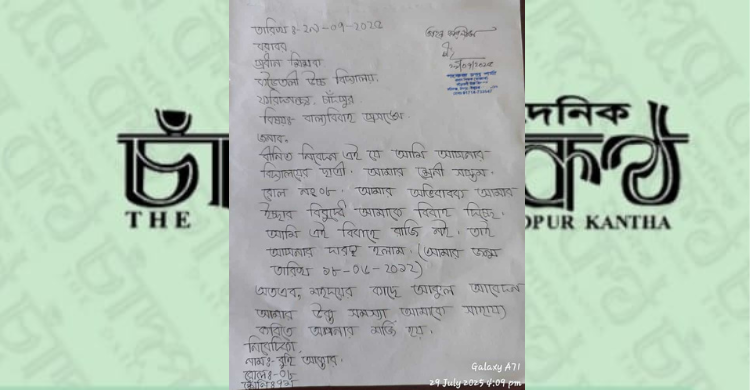 তারিখ :- ২৯-০৭-২০২৫
বরাবর
প্রধান শিক্ষক
উচ্চ বিদ্যালয়
ফরিদগঞ্জ, চাঁদপুর
বিষয়ঃ- বাল্যবিবাহ প্রসঙ্গে
জনাব,
বিনীত নিবেদন এই যে আমি আপনার
বিদ্যালয়ের ছাত্রী। আমার শ্রেণী সপ্তম।
রোল নং ০৮। আমার অভিবাবক আমার
ইচ্ছার বিরুদ্ধে আমাকে বিবাহ দিচ্ছে।
আমি এই বিবাহে রাজি নই। তাই
আপনার দারস্থ হলাম। (আমার জন্ম
তারিখ ১৮-০৮-২০১২)
অতএব, মহোদয়ের কাছে আকুল আবেদন
আমার উক্ত সমস্যা সাহায্য
করিতে আপনার মর্জি হয়।
নিবেদিকা
নামঃ- আক্তার।
রোল:- ০৮
দৈনিক
চাঁ
কণ্ঠ
THE
DPUR KANTHA
Galaxy A71
29 July 2025 4:09 pm